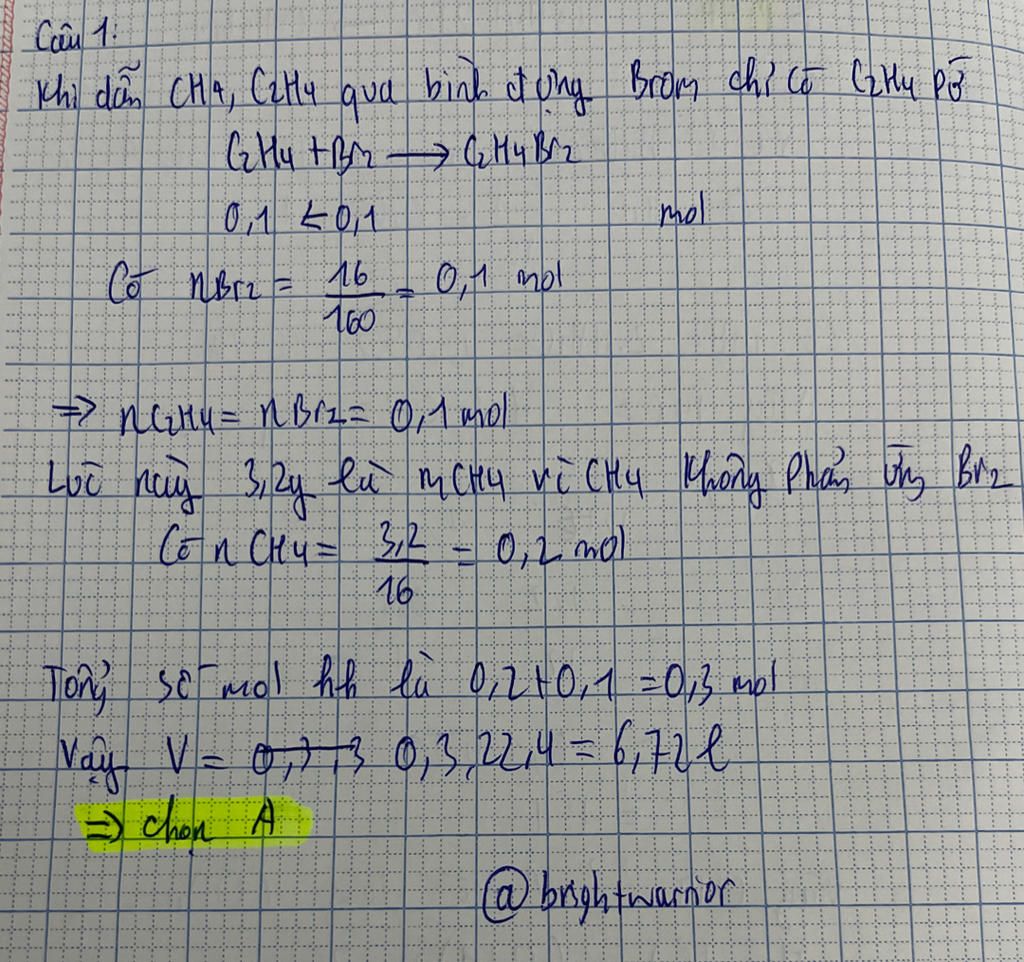 Câu 1:
Khi dẫn CH4, C2H4 qua bình đựng Brom chỉ có C2H4 pứ
C2H4 + Br2 ⟶ C2H4Br2
0,1 ← 0,1 mol
Có nBr2 = 16/160 = 0,1 mol
=> nC2H4 = nBr2 = 0,1 mol
Lúc này 3,2g là mCH4 vì CH4 không phản ứng Br2
Có nCH4 = 3,2/16 = 0,2 mol
Tổng số mol hh là 0,2+0,1 = 0,3 mol
Vậy V = 0,3.22,4 = 6,72 l
=> chọn A
@brightwarrior